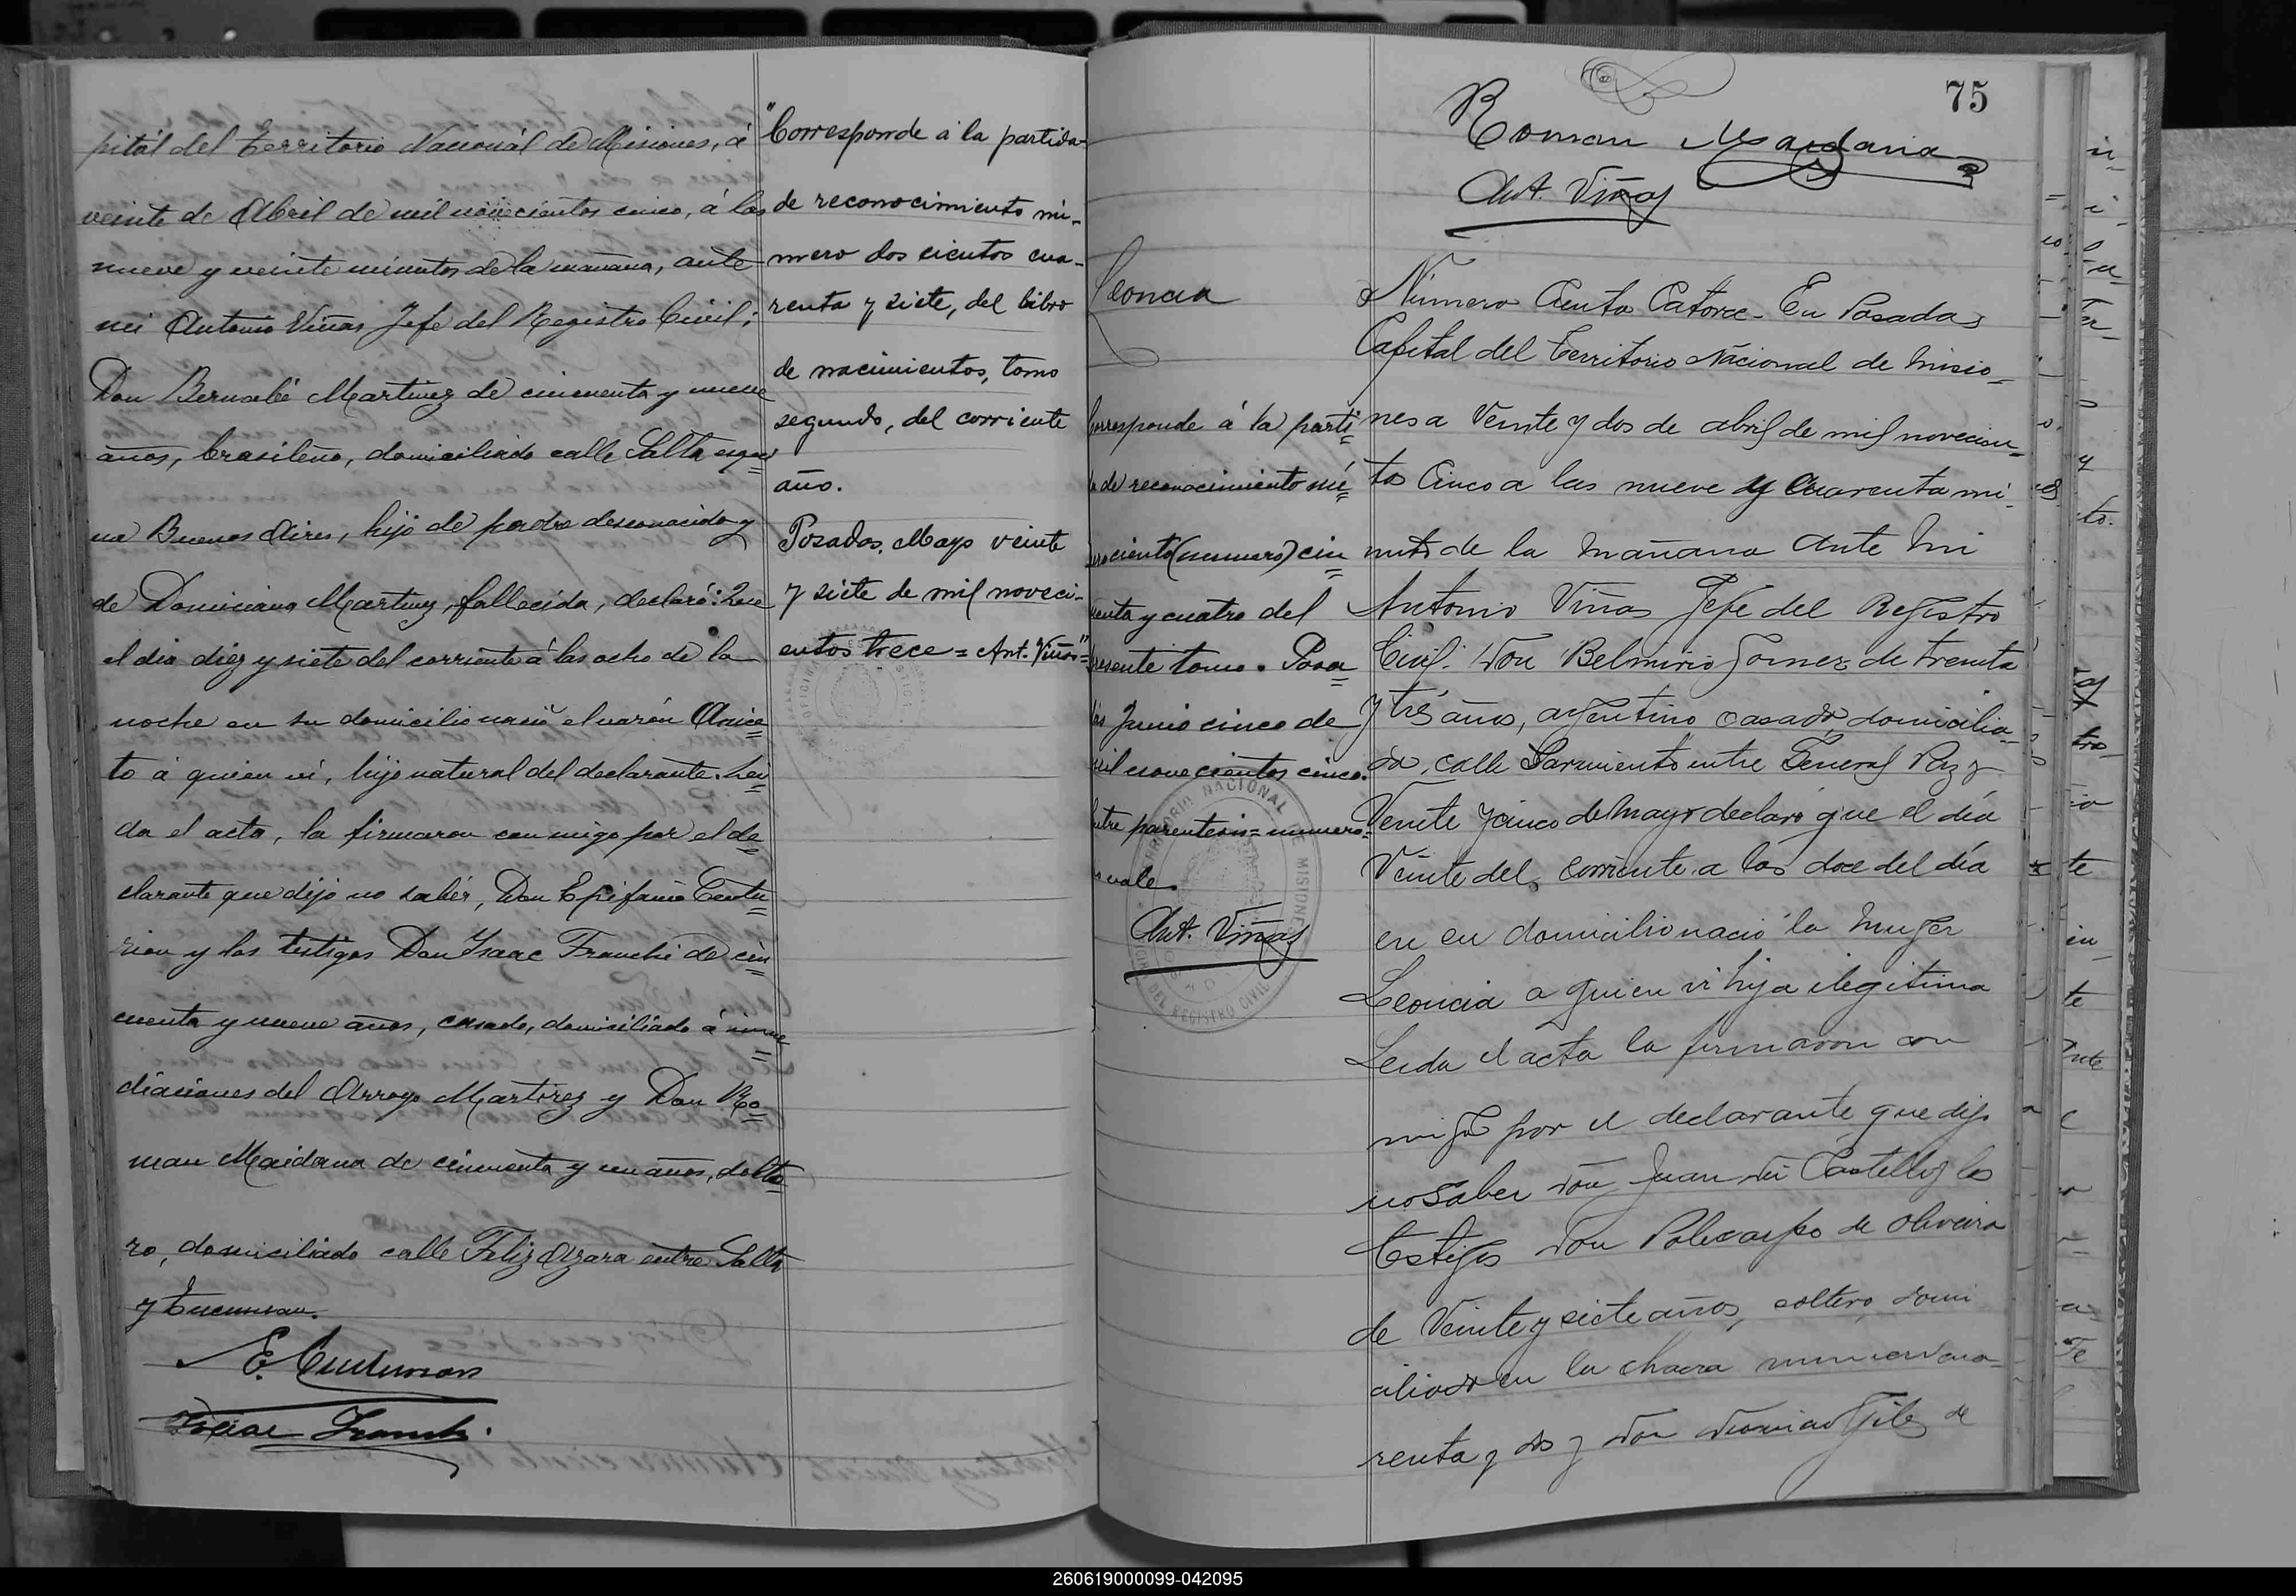 pitál del Territorio Nacionál de Misiones, á
veinte de Abril de mil novecientos cinco, á las
nueve y veinte minutos de la mañana, ante
mi Antonio Viñas Jefe del Registro Civil;
Don Bernabé Martinez de cincuenta y nueve
años, brasileño, domiciliado calle Salta esqui
na Buenos Aires, hijo de padre desconocido y
de Domiciana Martinez, fallecida, declaró: Que
el dia diez y siete del corriente á las ocho de la
noche en su domicilio nació el varón Anice
to á quien ví, hijo natural del declarante. Lei
da el acta, la firmaron conmigo por el de
clarante que dijo no sabér, Don Epifanio Centu
rion y los testigos Don Isaac Franchi de cin
cuenta y nueve años, casado, domiciliado á inme
diaciones del Arroyo Martirez y Don Ro
man Maidana de cincuenta y un años, solte
ro, domiciliado calle Feliz Azara entre Salta
y Tucuman.
E. Centurion
Isaac Franchi
"Corresponde á la partida
de reconocimiento nú-
mero dos cientos cua-
renta y siete, del libro
de nacimientos, tomo
segundo, del corriente
año.
Posadas, Mayo veinte
y siete de mil noveci-
entos trece = Ant. Viñas"=
75
Roman Maidana
Ant. Viñas
Leoncia
Corresponde á la parti
da de reconocimiento nú
mero ciento (numero) cin
cuenta y cuatro del
presente tomo. Posa
das Junio cinco de
mil novecientos cinco.
Entre parentesis = numero=
no vale.
Ant. Viñas
GOBERNACION NACIONAL DE MISIONES
DEL REGISTRO CIVIL
Número Ciento Catorce - En Posadas
Capital del Territorio Nacional de Misio-
nes a Veinte y dos de abril de mil novecien-
tos Cinco a las nueve y Cuarenta mi-
nutos de la Mañana Ante Mi
Antonio Viñas Jefe del Registro
Civil. Don Belmiro Gomez de treinta
y trés años, argentino, casado, domicilia-
do, calle Sarmiento entre General Paz y
Veinte y cinco de Mayo declaró que el día
Veinte del corriente a las doce del día
en su domicilio nació la Muger
Leoncia a quien vi hija ilegitima
Leida el acta la firmaron con
migo por el declarante que dijo
no Saber Don Juan de Castell y los
testigos Don Policarpo de Oliveira
de Veinte y siete años, soltero, domi
ciliado en la chacra numero cua-
renta y dos y Don Damian Gil de
260619000099-042095